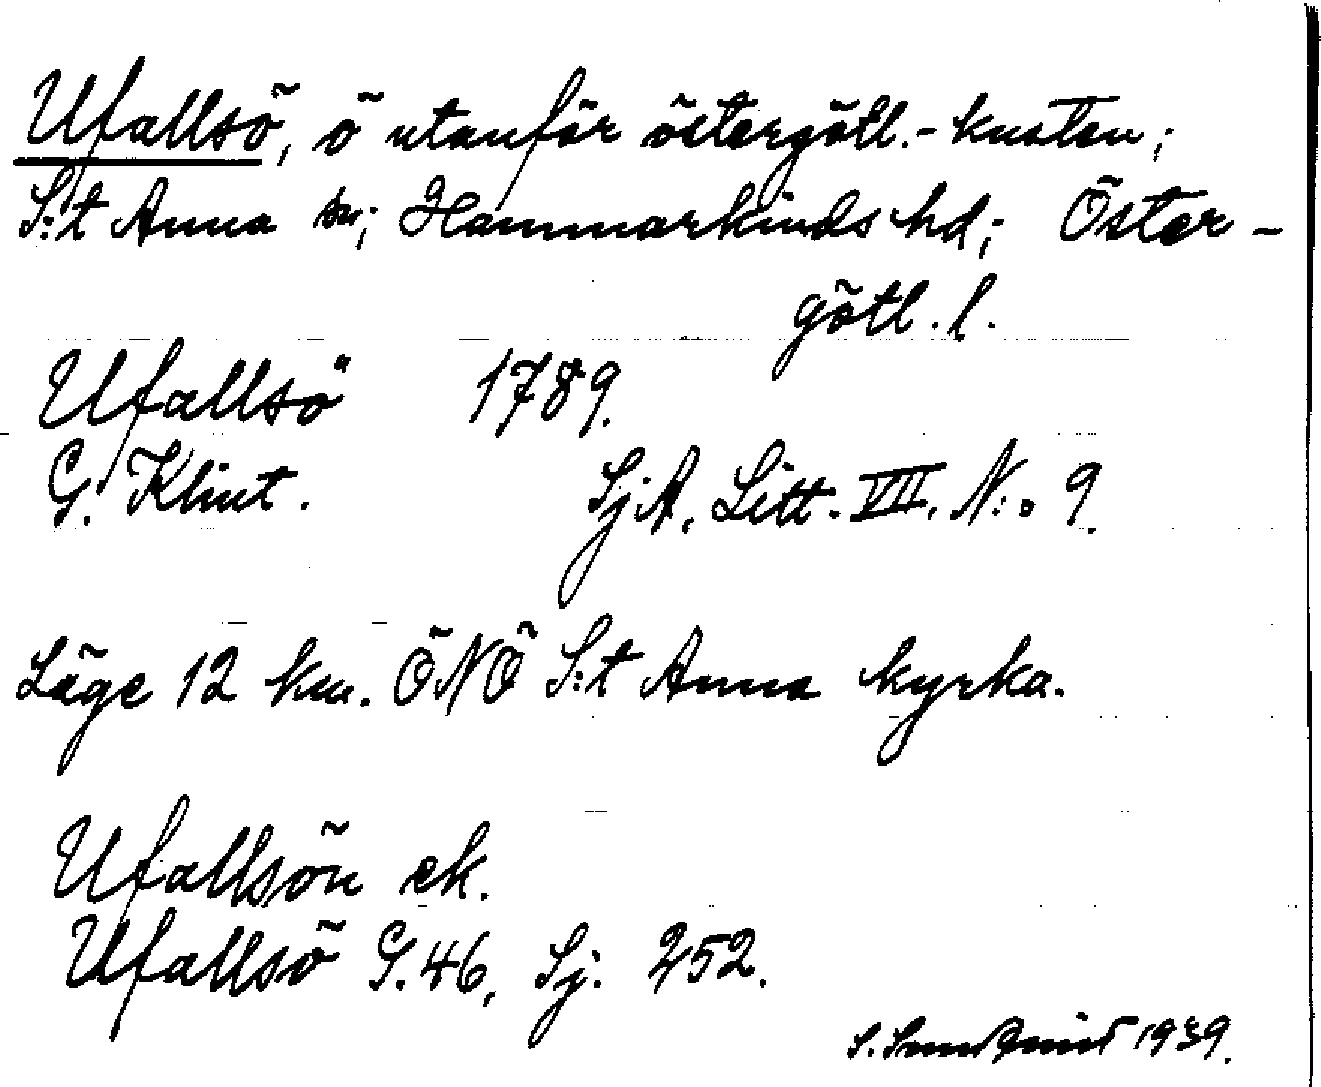 Ufallsö, ö utanför östergötl.-kusten;
S:t Anna sn; Hammarkinds hd; Öster-
götl. l.
Ufallsö 1789.
G. Klint. SjA, Litt. VII, N:o 9.
Läge 12 km. ÖNÖ S:t Anna kyrka.
Ufallsön ek.
Ufallsö G. 46, Sj. 252.
S. 1939.